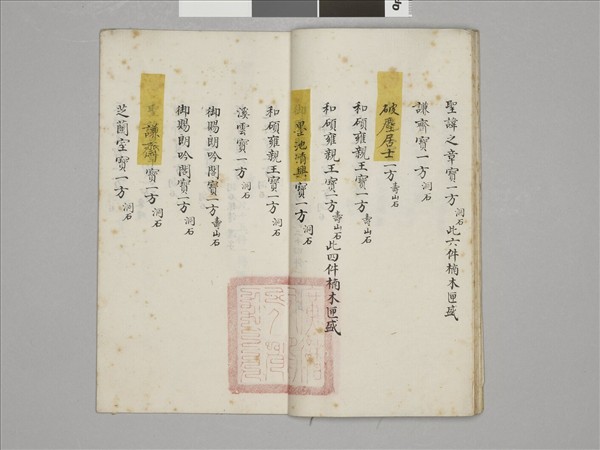 聖諱之章寶一方洞石此六件楠木匣盛
謙齋寶一方洞石
破塵居士一方壽山石
和碩雍親王寶一方壽山石
和碩雍親王寶一方壽山石此四件楠木匣盛
御墨池清興寶一方洞石
和碩雍親王寶一方洞石
溪雲寶一方洞石
御賜朗吟閣寶一方壽山石
御賜朗吟閣寶一方洞石
謙齋寶一方洞石
芝蘭室寶一方洞石